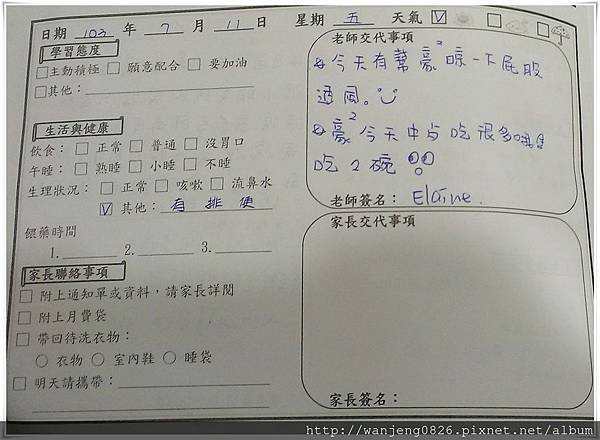 日期 103 年 7 月 11 日 星期 五 天氣 ☑ □ □
學習態度
□主動積極 □ 願意配合 □ 要加油
□其他：
生活與健康
飲食：□ 正常 □ 普通 □ 沒胃口
午睡：□ 熟睡 □ 小睡 □ 不睡
生理狀況：□ 正常 □ 咳嗽 □ 流鼻水
☑ 其他：有排便
餵藥時間
1. 2. 3.
家長聯絡事項
□ 附上通知單或資料，請家長詳閱
□ 附上月費袋
□ 帶回待洗衣物：
○ 衣物 ○ 室內鞋 ○ 睡袋
□ 明天請攜帶：
老師交代事項
今天有幫豪2晾一下屁股
通風。
豪2今天中午吃很多哦!!
吃2碗
老師簽名：Elaine.
家長交代事項
家長簽名：
http://wanjeng0826.pixnet.net/album